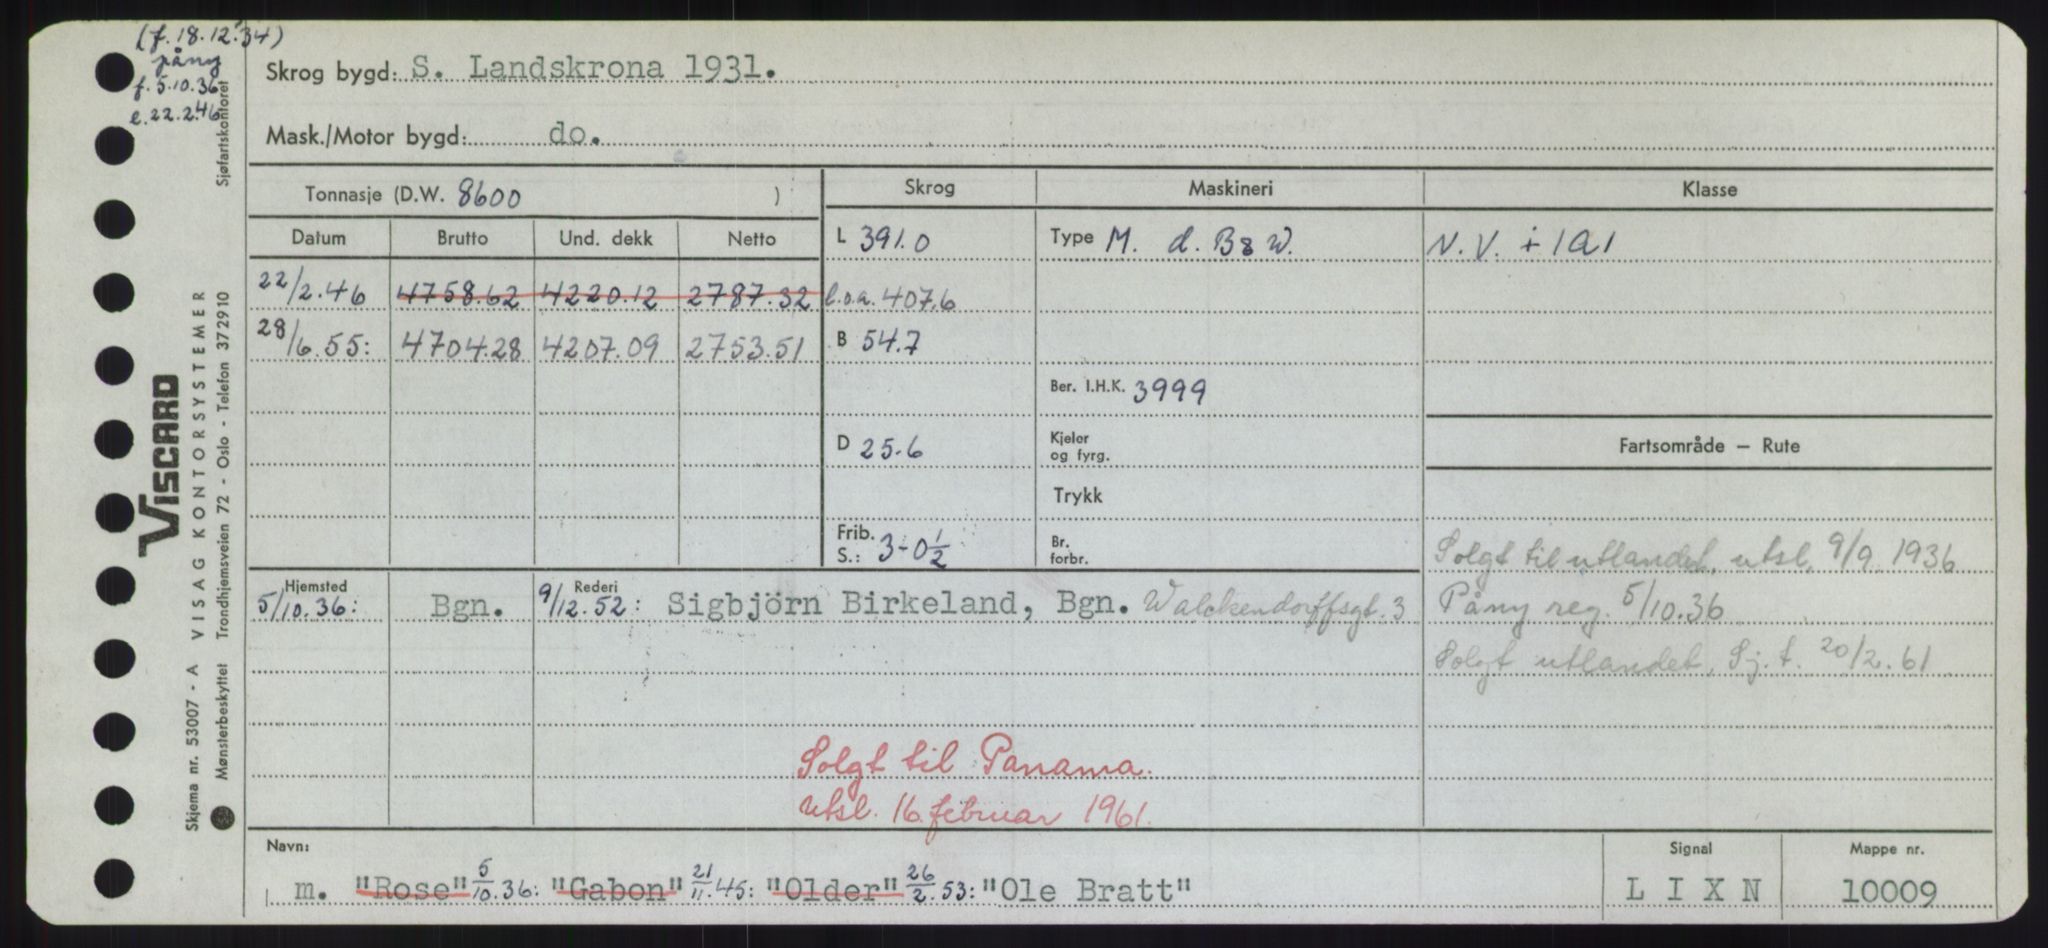 (f. 18.12.34)
påny
f. 5.10.36
e. 22.2.46
Skrog bygd: S. Landskrona 1931.
Mask./Motor bygd: do.
Tonnasje (D.W. 8600 )
Skrog
Maskineri
Klasse
Datum
Brutto
Und. dekk
Netto
L 391.0
Type M. d. B&W.
N.V. + 1A1
22/2.46 4758.62 4220.12 2787.32
l.o.a. 407.6
28/6.55: 4704.28 4207.09 2753.51
B 54.7
Ber. I.H.K. 3999
D 25.6
Kjeler
og fyrg.
Fartsområde — Rute
Trykk
Frib.
S.: 3-0 1/2
Br.
forbr.
Solgt til utlandet, utsl. 9/9 1936
Hjemsted
5/10.36: Bgn.
Rederi
9/12.52: Sigbjörn Birkeland, Bgn. Walckendorffsgt. 3
Påny reg. 5/10.36
Solgt utlandet, Sj.t. 20/2.61
Solgt til Panama.
Utsl. 16. februar 1961.
Navn:
m. "Rose" 5/10.36: "Gabon" 21/11.45: "Older" 26/2.53: "Ole Bratt"
Signal
L I X N
Mappe nr.
10009
VISCARD
VISAG KONTORSYSTEMER
Skjema nr. 53007 - A
Mønsterbeskyttet Trondhjemsveien 72 - Oslo - Telefon 372910
Sjøfartskontoret